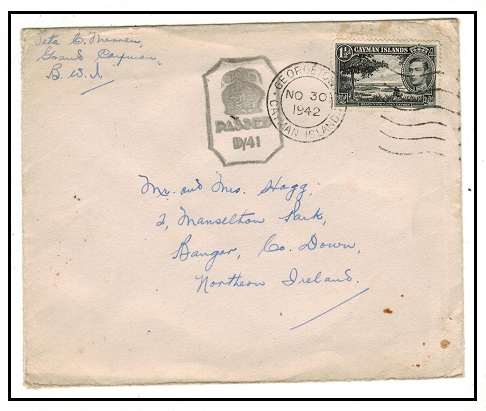 Grand Cayman,
B.W.I.
PASSED
D/41
GEORGETOWN
NO 30
1942
CAYMAN ISLANDS
1½D
CAYMAN ISLANDS
Mr. and Mrs. Hogg,
2, Manselton Park,
Bangor, Co. Down,
Northern Ireland.